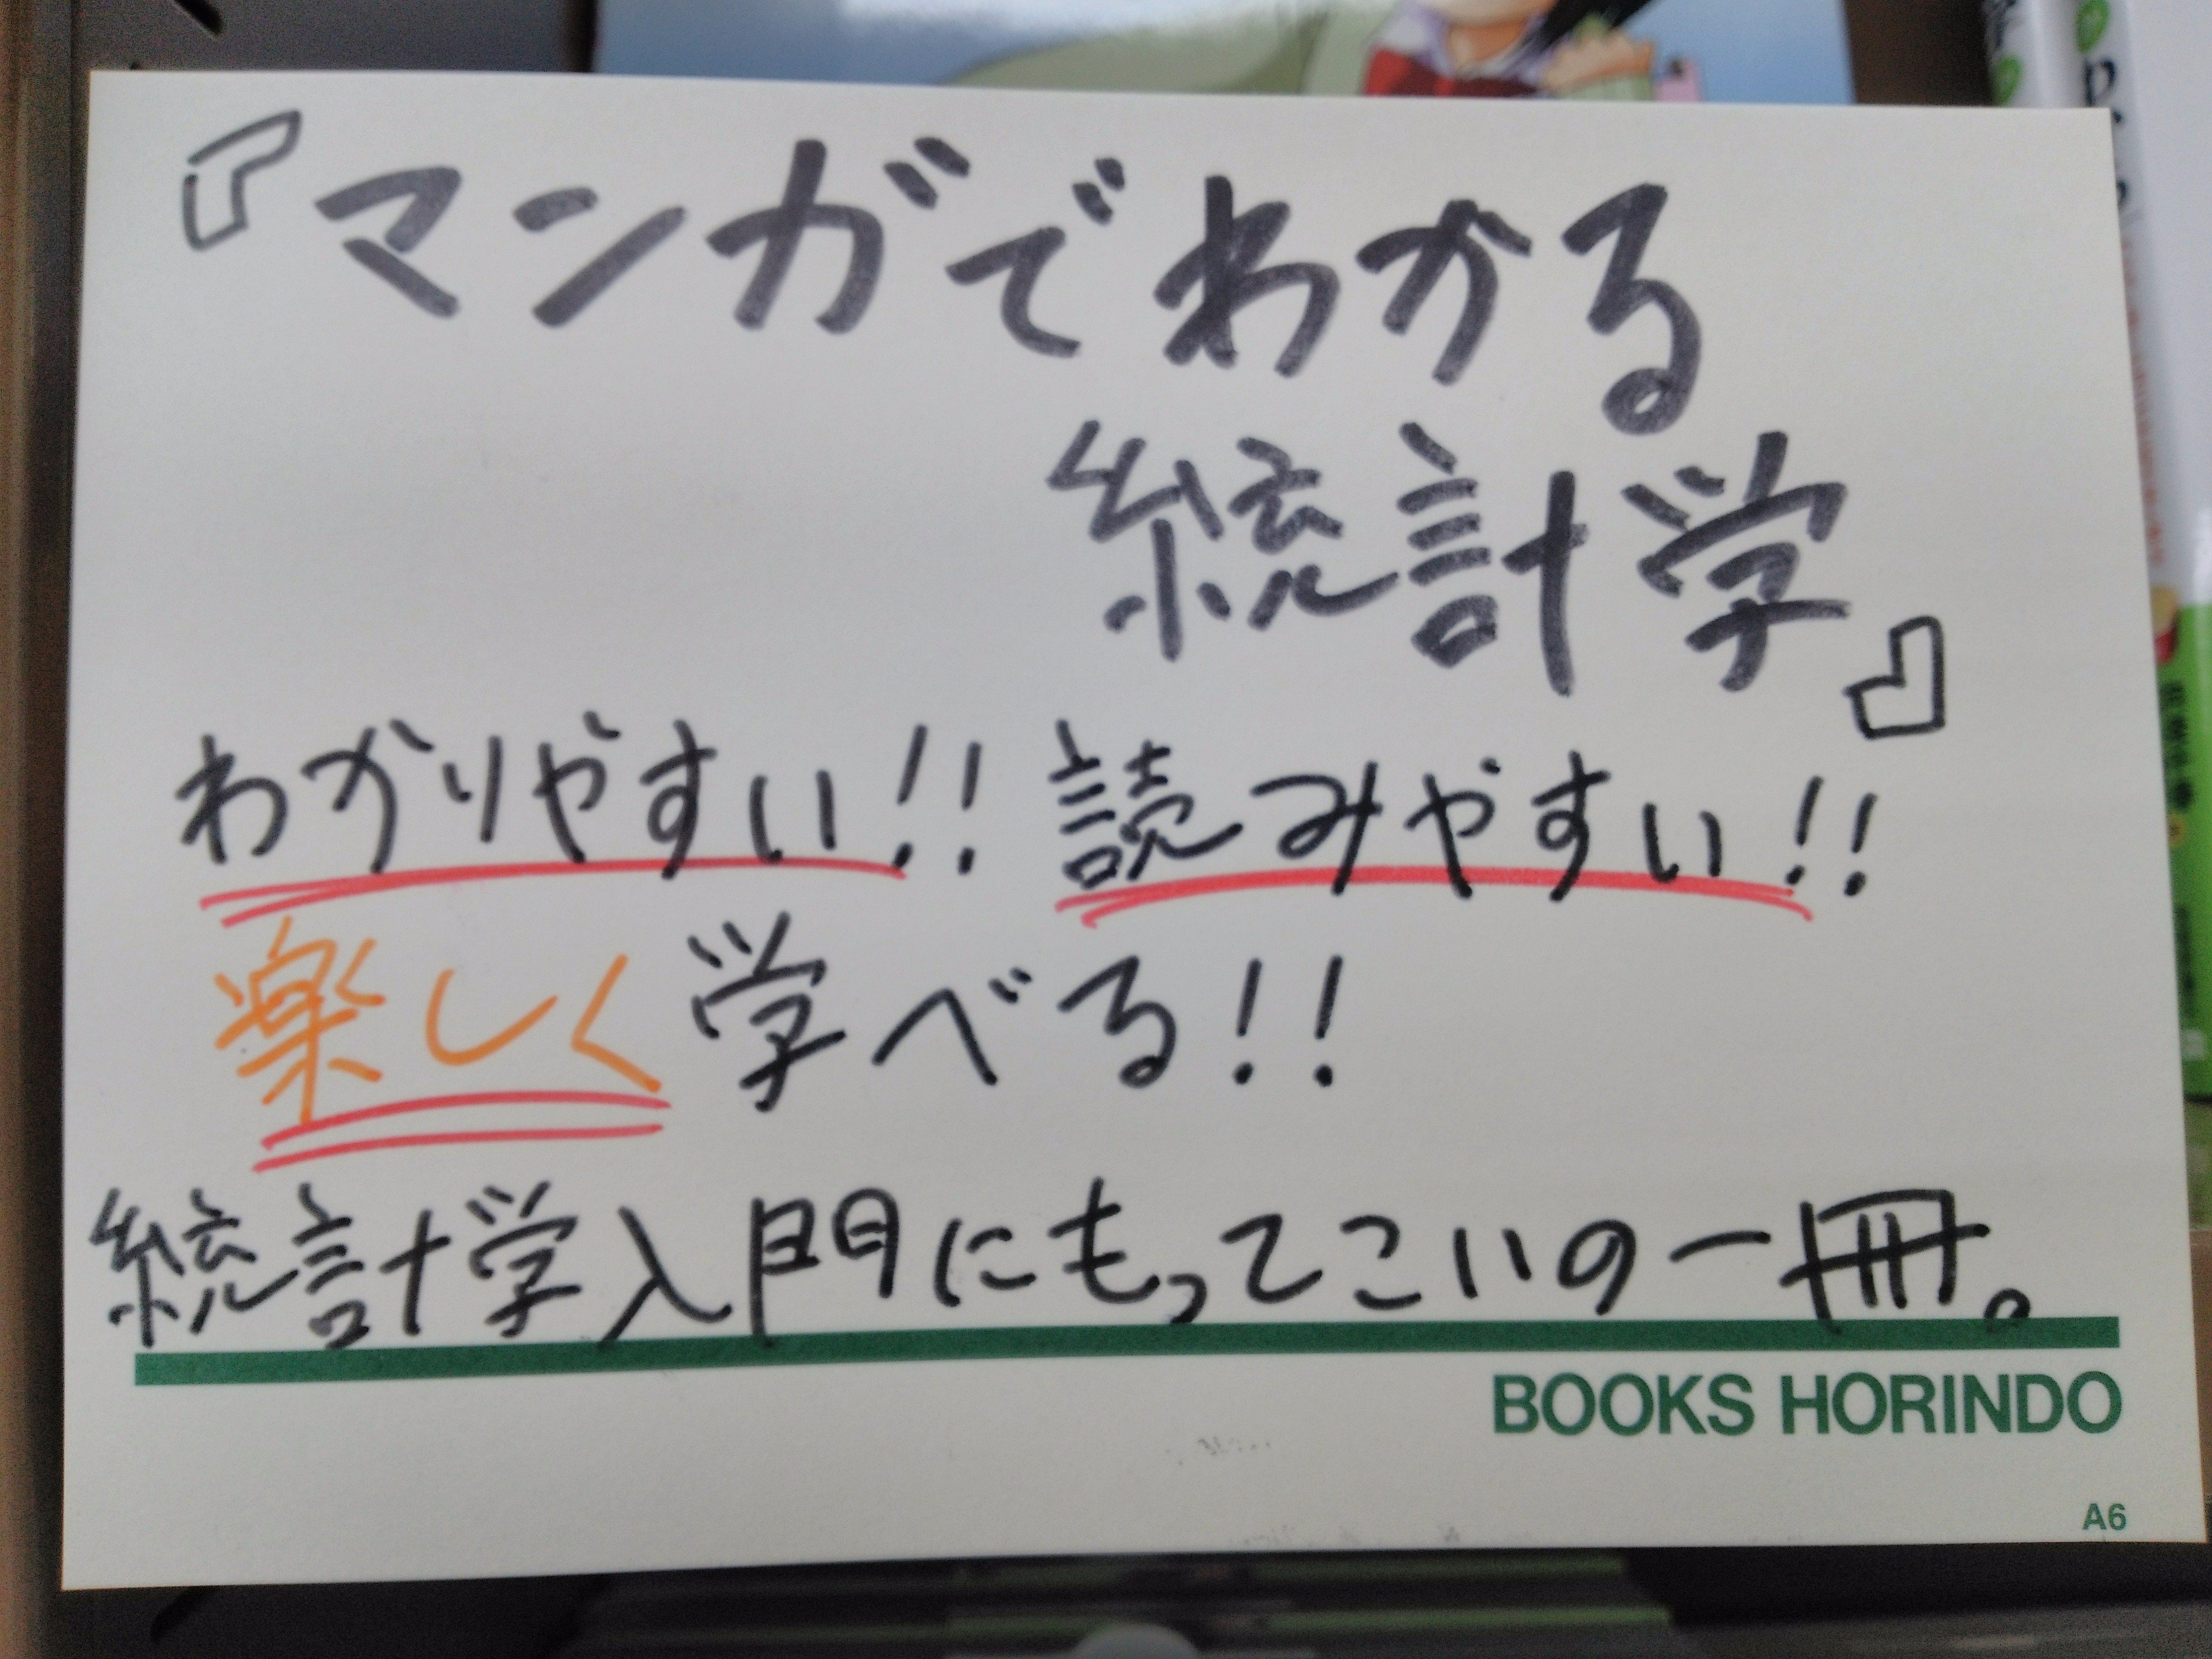 『マンガでわかる
統計学』
わかりやすい!! 読みやすい!!
楽しく学べる!!
統計学入門にもってこいの一冊。
BOOKS HORINDO
A6